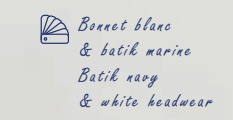 Bonnet blanc
& batik marine
Batik navy
& white headwear